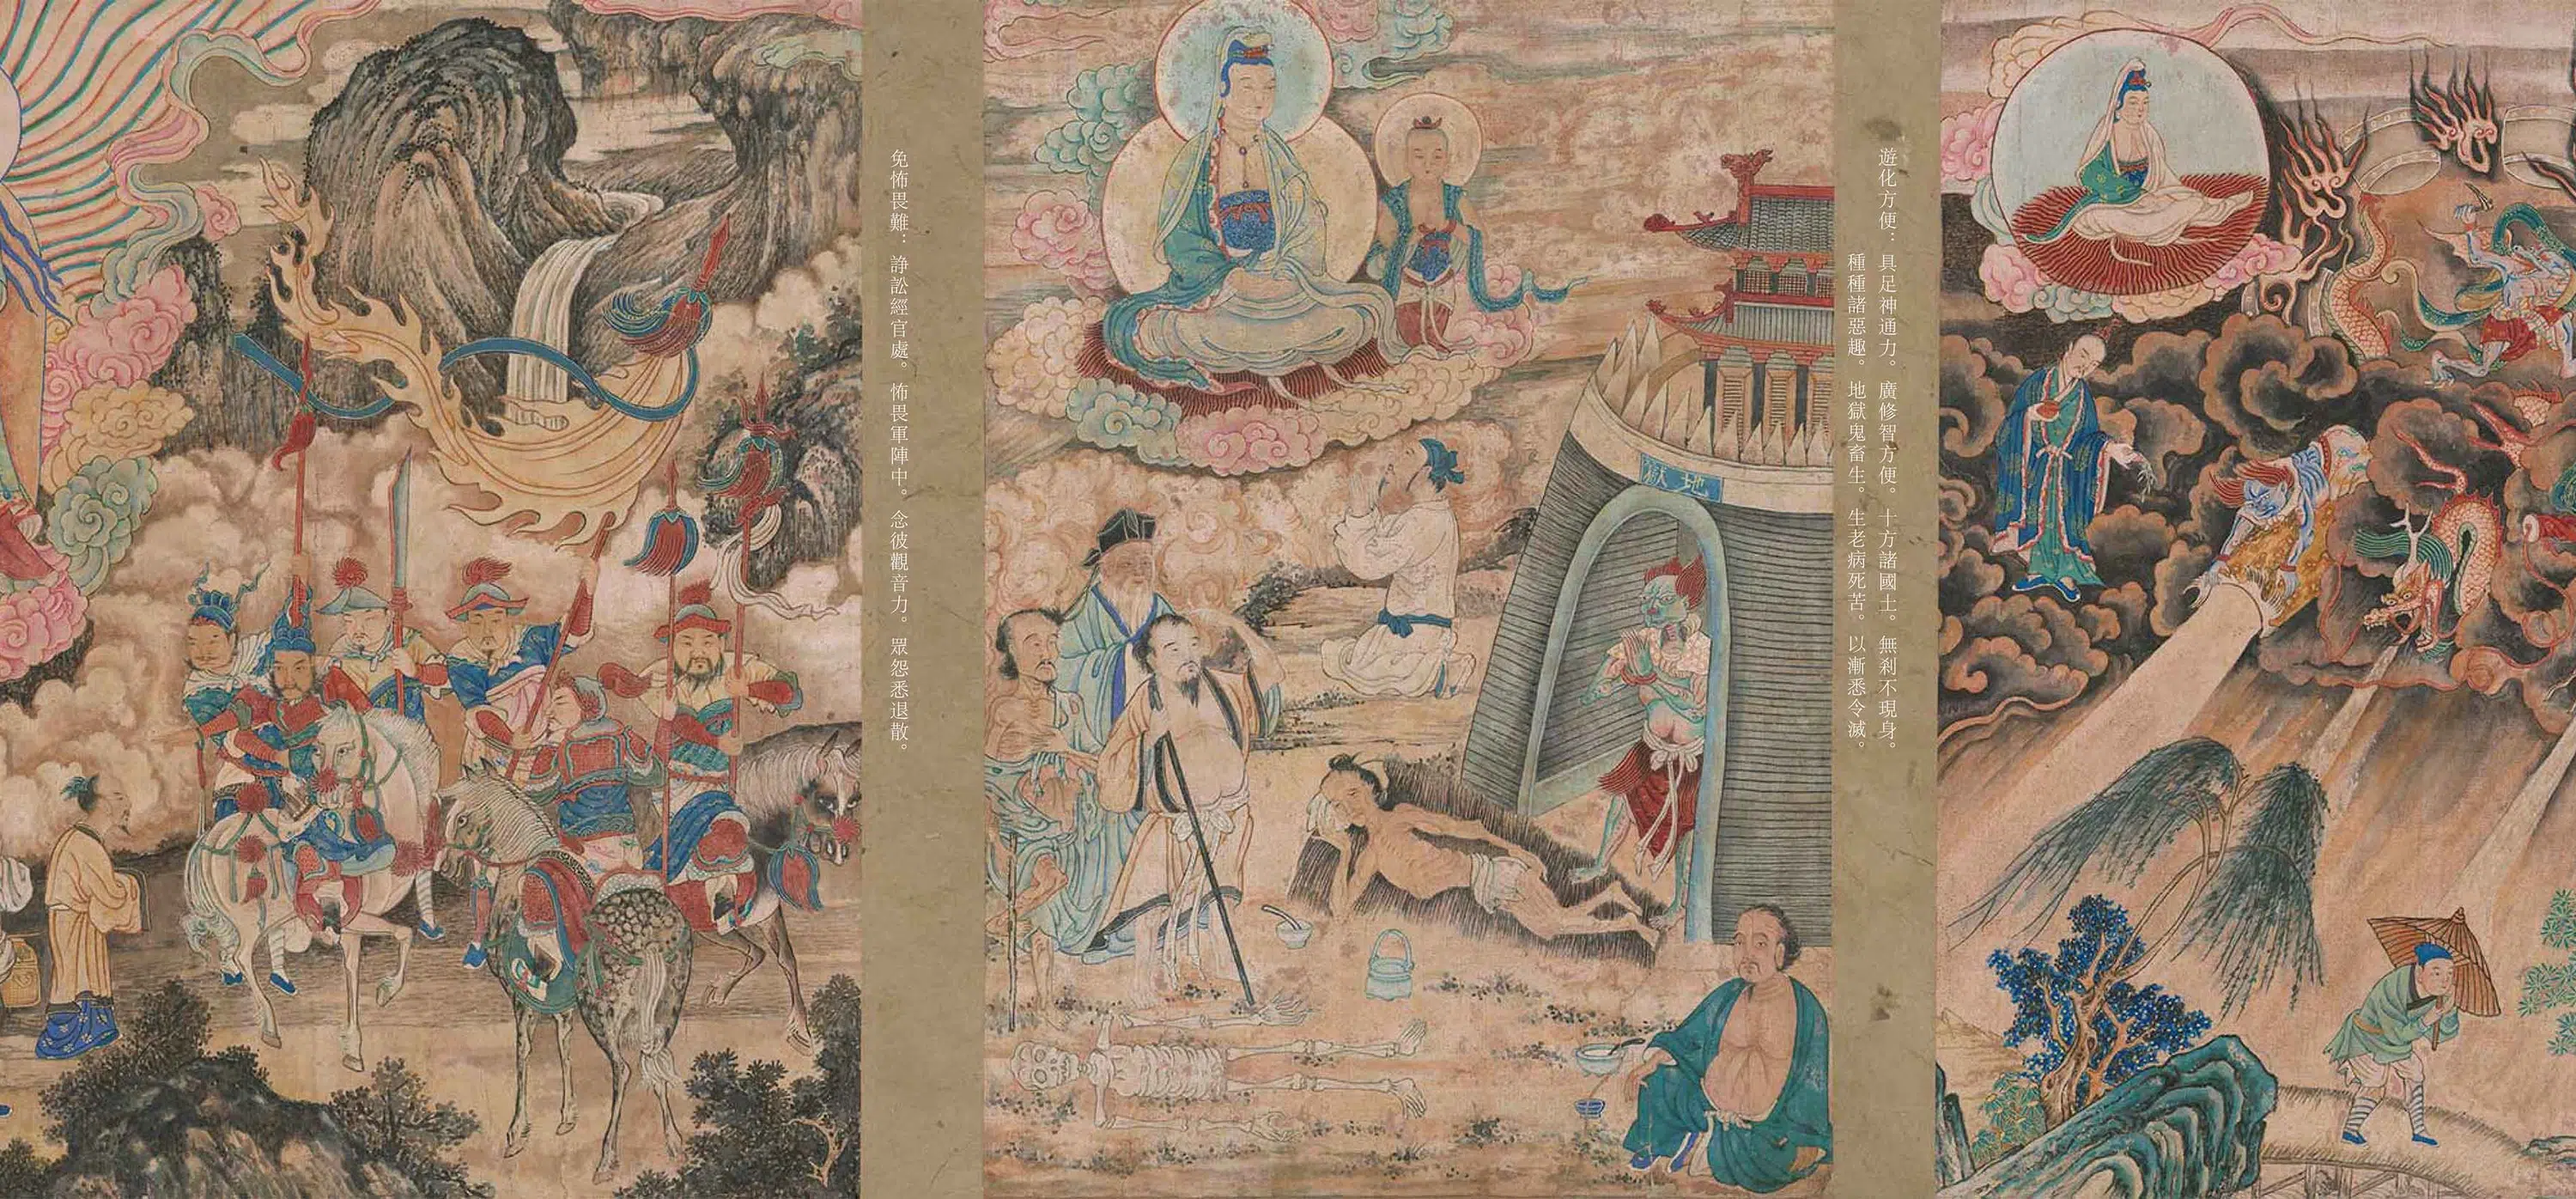 遊化方便：具足神通力。廣修智方便。十方諸國土。無剎不現身。
種種諸惡趣。地獄鬼畜生。生老病死苦。以漸悉令滅。
地獄
免怖畏難：諍訟經官處。怖畏軍陣中。念彼觀音力。眾怨悉退散。